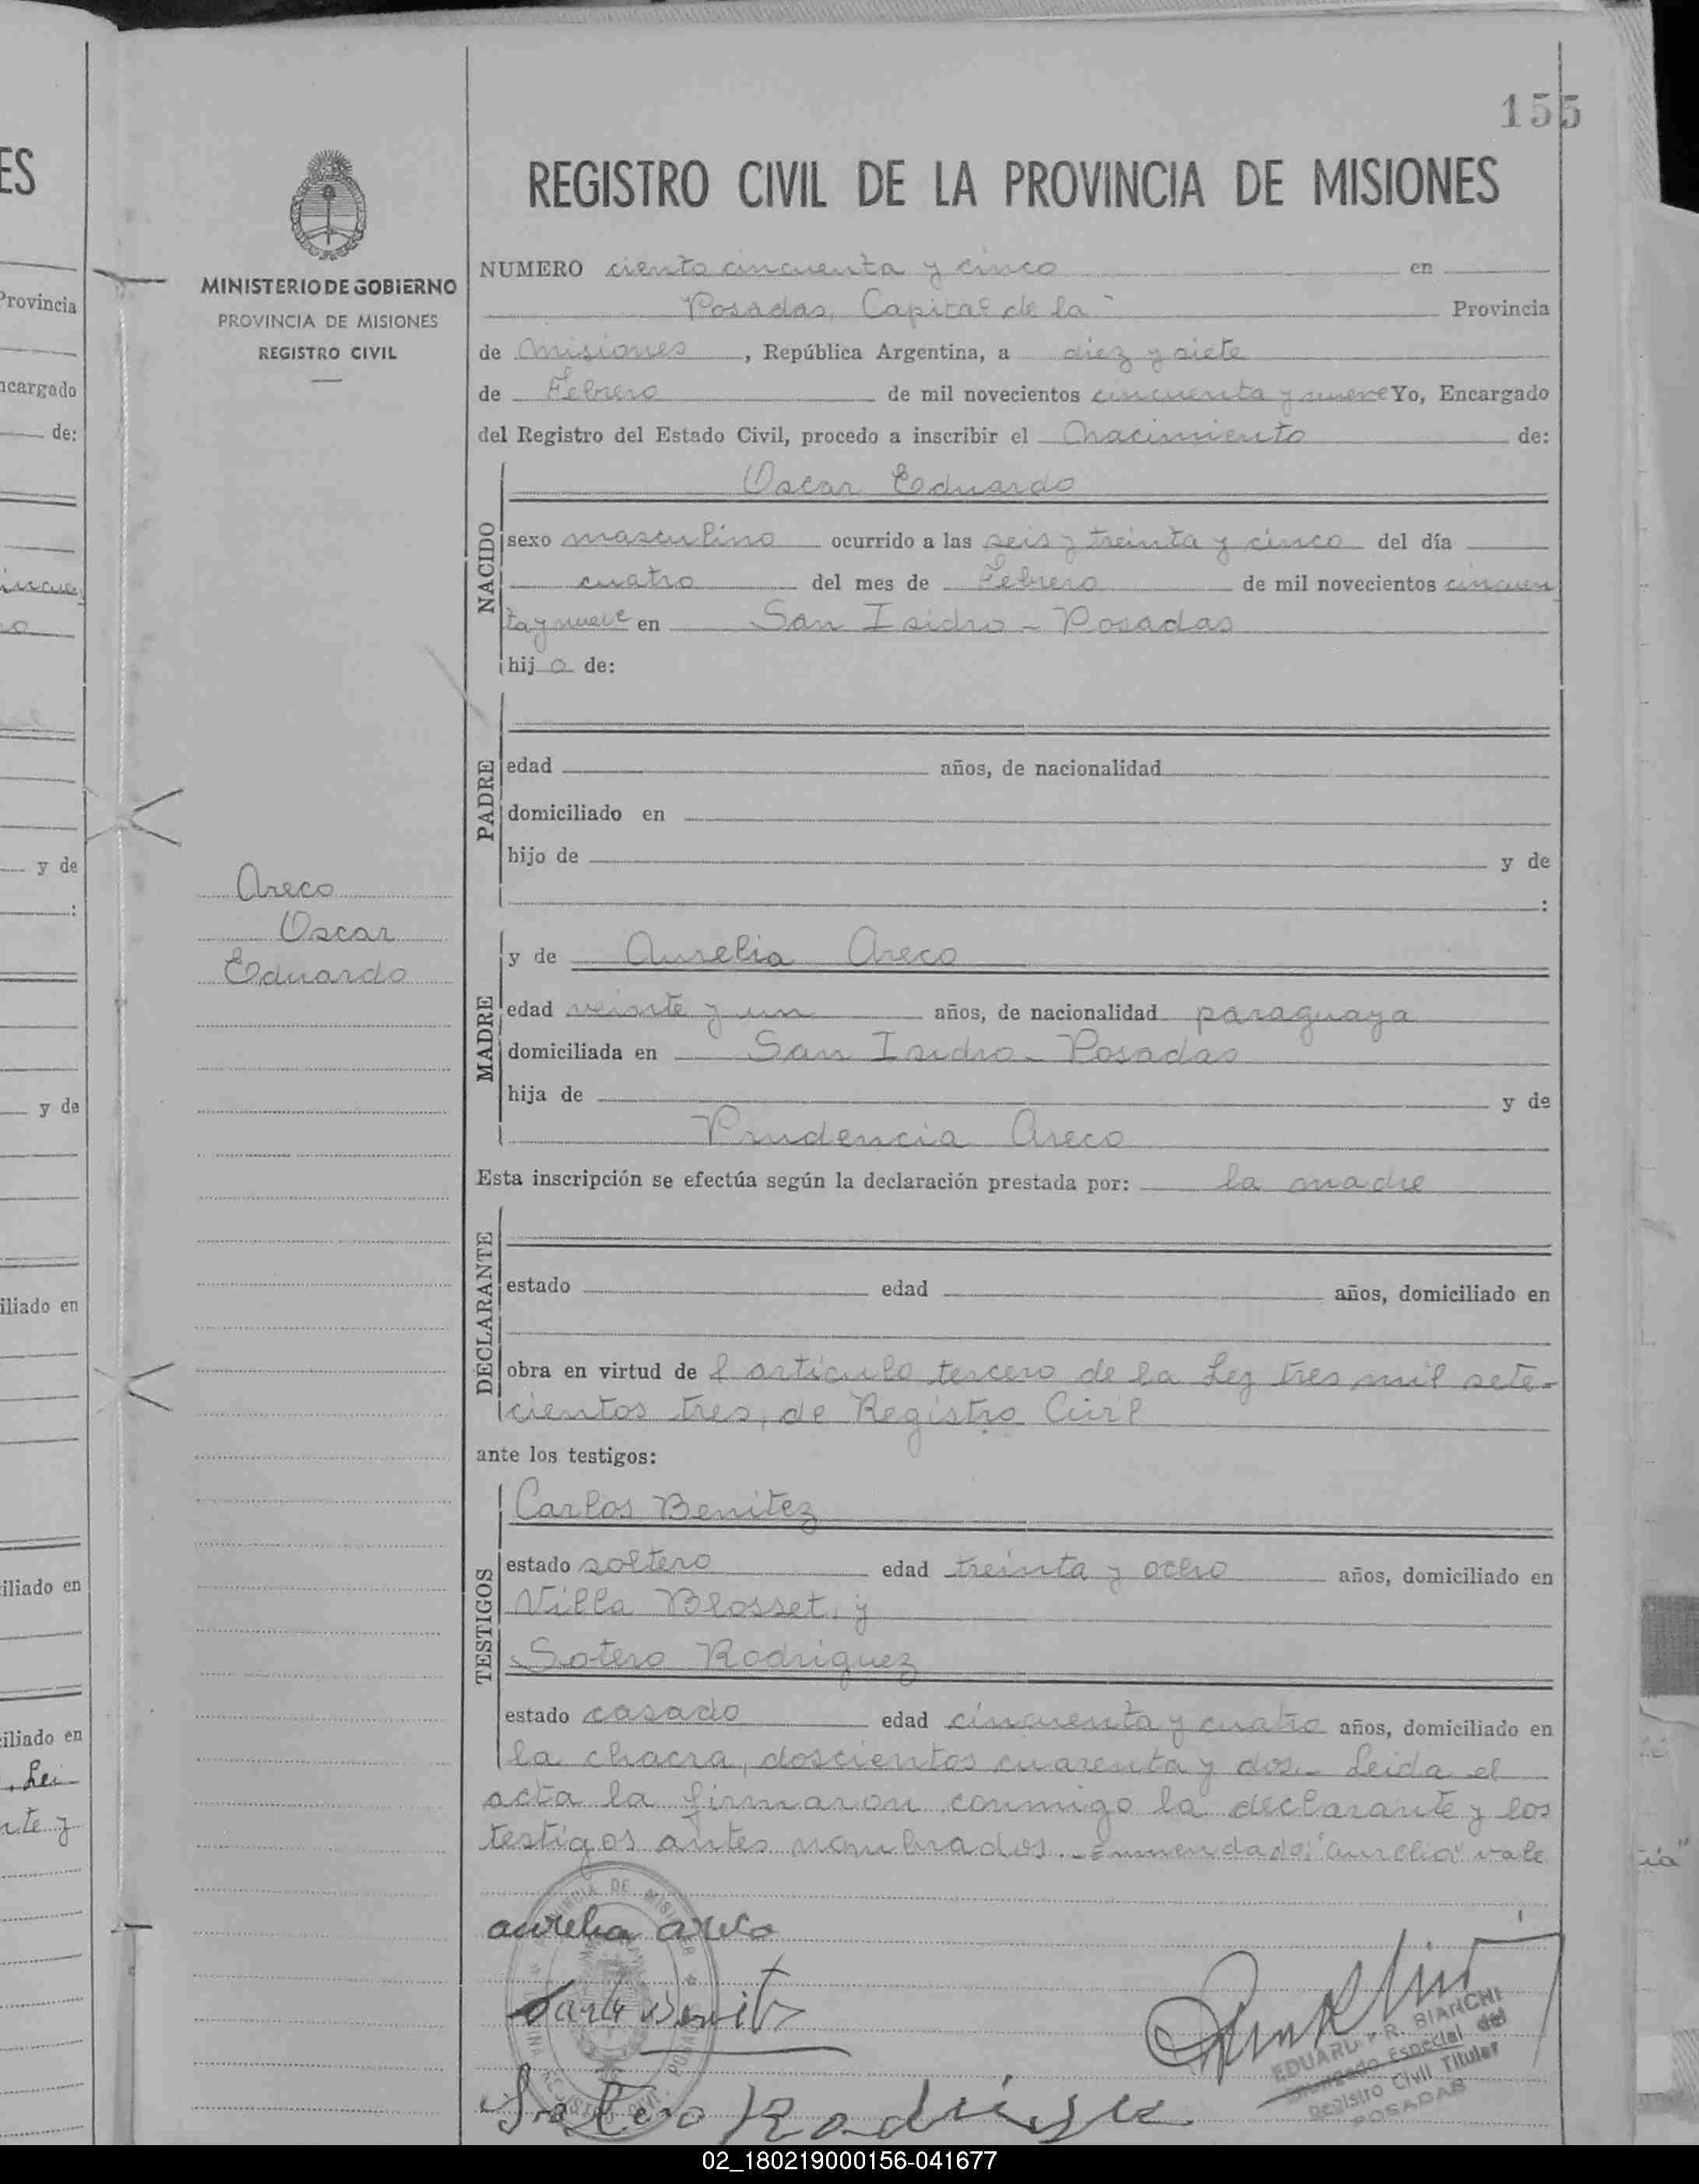 155
REGISTRO CIVIL DE LA PROVINCIA DE MISIONES
MINISTERIO DE GOBIERNO
PROVINCIA DE MISIONES
REGISTRO CIVIL
NUMERO ciento cincuenta y cinco en
Posadas, Capital de la Provincia
de Misiones, República Argentina, a diez y siete
de Febrero de mil novecientos cincuenta y nueve Yo, Encargado
del Registro del Estado Civil, procedo a inscribir el Nacimiento de:
NACIDO
Oscar Eduardo
sexo masculino ocurrido a las seis y treinta y cinco del día
cuatro del mes de Febrero de mil novecientos cincuen
ta y nueve en San Isidro - Posadas
hijo de:
PADRE
edad años, de nacionalidad
domiciliado en
hijo de y de
:
Areco
Oscar
Eduardo
MADRE
y de Aurelia Areco
edad veinte y un años, de nacionalidad paraguaya
domiciliada en San Isidro - Posadas
hija de y de
Prudencia Areco
Esta inscripción se efectúa según la declaración prestada por: la madre
DECLARANTE
estado edad años, domiciliado en
obra en virtud de l artículo tercero de la Ley tres mil sete-
cientos tres, de Registro Civil
ante los testigos:
TESTIGOS
Carlos Benitez
estado soltero edad treinta y ocho años, domiciliado en
Villa Blosset, y
Sotero Rodriguez
estado casado edad cincuenta y cuatro años, domiciliado en
la chacra, doscientos cuarenta y dos.- Leida el
acta la firmaron conmigo la declarante y los
testigos antes nombrados.- Enmendado: "Aurelia" vale
aurelia areco
EDUARDO R. BIANCHI
Especial del
Registro Civil Titular
POSADAS
Sotero Rodriguez
ES
Provincia
ncargado
de:
y de
:
y de
iliado en
iliado en
iliado en
. Lei
nte y
02_180219000156-041677